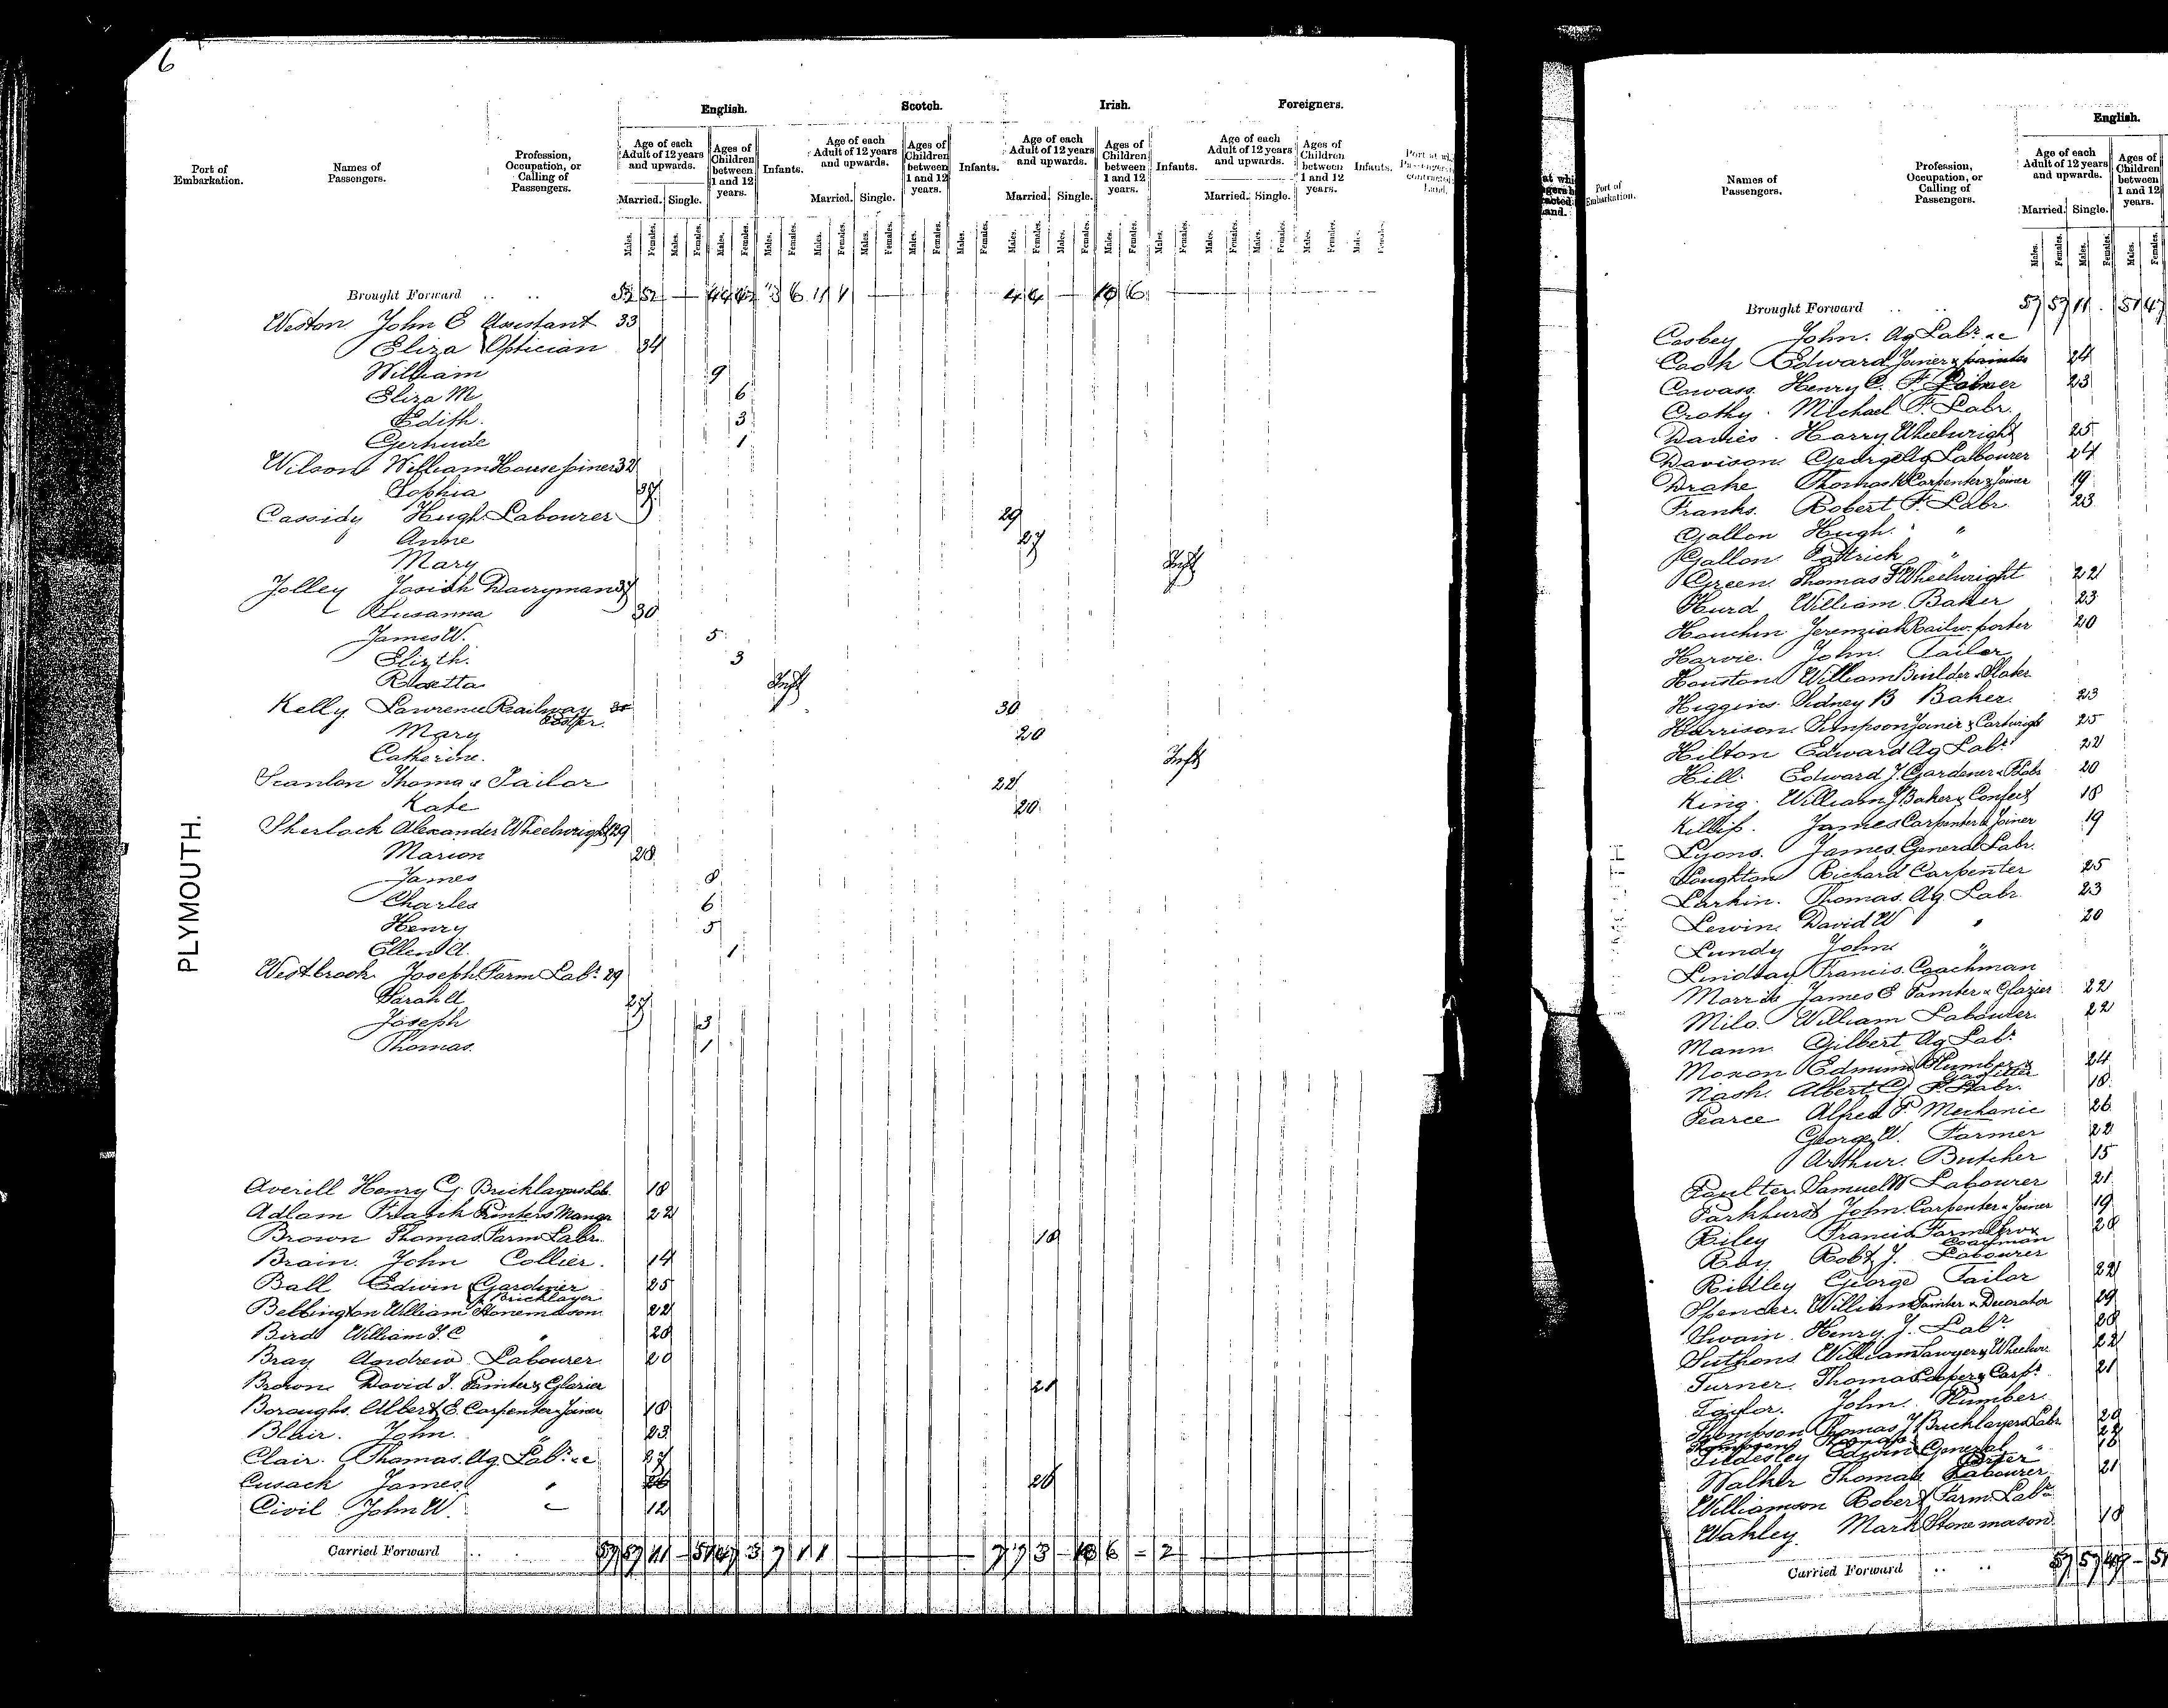 6
English. Scotch. Irish. Foreigners.
Port of Embarkation. Names of Passengers. Profession, Occupation, or Calling of Passengers.
Age of each Adult of 12 years and upwards. Ages of Children between 1 and 12 years. Infants. Age of each Adult of 12 years and upwards. Ages of Children between 1 and 12 years. Infants. Age of each Adult of 12 years and upwards. Ages of Children between 1 and 12 years. Infants. Age of each Adult of 12 years and upwards. Ages of Children between 1 and 12 years. Infants.
Married. Single. Married. Single. Married. Single. Married. Single.
Males. Females. Males. Females. Males. Females. Males. Females. Males. Females. Males. Females. Males. Females. Males. Females. Males. Females. Males. Females. Males. Females. Males. Females. Males. Females. Males. Females. Males. Females. Males. Females.
PLYMOUTH.
Brought Forward
Weston John E Assistant 33
Eliza Optician 34
William 9
Eliza M 6
Edith. 3
Gertrude 1
Wilson William House Joiner 32
Sophia 37
Cassidy Hugh Labourer 29
Anne 27
Mary Inft
Jolley Josiah Dairyman 37
Susanna 30
James W. 5
Elizth. 3
Rosetta Inft
Kelly Lawrence Railway Porter 30
Mary 20
Catherine. Inft
Scanlon Thomas Tailor 22
Kate 20
Sherlock Alexander Wheelwright 29
Marion 28
James 8
Charles 6
Henry 5
Ellen A. 1
Westbrook Joseph Farm Labr. 29
Sarah A 27
Joseph 3
Thomas. 1
Averill Henry G. Bricklayers Lab. 18
Adlam Frank Printers Mangr 22
Brown Thomas Farm Labr. 18
Brain. John Collier. 14
Ball Edwin Gardener 25
Bebbington William Bricklayer Stonemason 22
Bird William T. C " 20
Bray Andrew Labourer 20
Brown David J. Painter & Glazier 21
Boroughs. Albert E. Carpenter & Joiner 18
Blair. John. " 23
Clair. Thomas. Ag. Labr. &c 27
Cusack James " 20
Civil John W. 12
Carried Forward
English.
Port of Embarkation. Names of Passengers. Profession, Occupation, or Calling of Passengers. Age of each Adult of 12 years and upwards. Ages of Children between 1 and 12 years.
Married. Single.
Males. Females. Males. Females. Males. Females.
Brought Forward 57 57 11 51 47
Casbey John. Ag Labr. &c
Cook Edward Joiner & painter 24
Cowass. Henry C. F. Labour 23
Crothy. Michael F. Labr.
Davies. Harry Wheelwright 25
Davison George Ag Labourer 24
Drake Thomas W Carpenter & Joiner 19
Franks. Robert F. Labr 23
Gallon Hugh. "
Gallon Patrick "
Green Thomas F Wheelwright 22
Hurd William Baker 23
Houchin Jeremiah Railw. porter 20
Harvie. John. Tailor
Houston William Builder & Slater
Higgins. Sidney B Baker. 23
Harrison. Simpson Joiner & Cartwright 25
Hilton Edward Ag Labr 22
Hill. Edward J. Gardener & Labr 20
King. William J Baker & Confect 18
Killip. James Carpenter & Joiner 19
Lyons. James General Labr.
Loughton Richard Carpenter 25
Larkin. Thomas. Ag. Labr. 23
Lewin David W " 20
Lundy John "
Lindsay Francis. Coachman
Morris James E Painter & Glazier 22
Milo. William Labourer. 22
Mann Gilbert Ag Labr
Moxon Edmund Plumber & Gasfitter 24
Nash. Albert G F. Labr. 18
Pearce Alfred P. Mechanic 26
George W. Farmer 22
Arthur. Butcher 15
Poulter Samuel W Labourer 21
Parkhurst John. Carpenter & Joiner 19
Riley Francis Farm Serv 20
Ray Robt J. Coachman Labourer
Ridley George Tailor 22
Spencer. William Painter & Decorator 19
Swain Henry J. Labr. 20
Suthons William Sawyer & Wheelwr. 22
Turner Thomas Cooper & Carpr 21
Taylor. John. Plumber
Thompson Thomas J Bricklayers Labr. 20
Tildesley Edwin General "
Walker Thomas Labourer 21
Williamson Robert Farm Labr
Wahley. Mark Stonemason. 18
Carried Forward